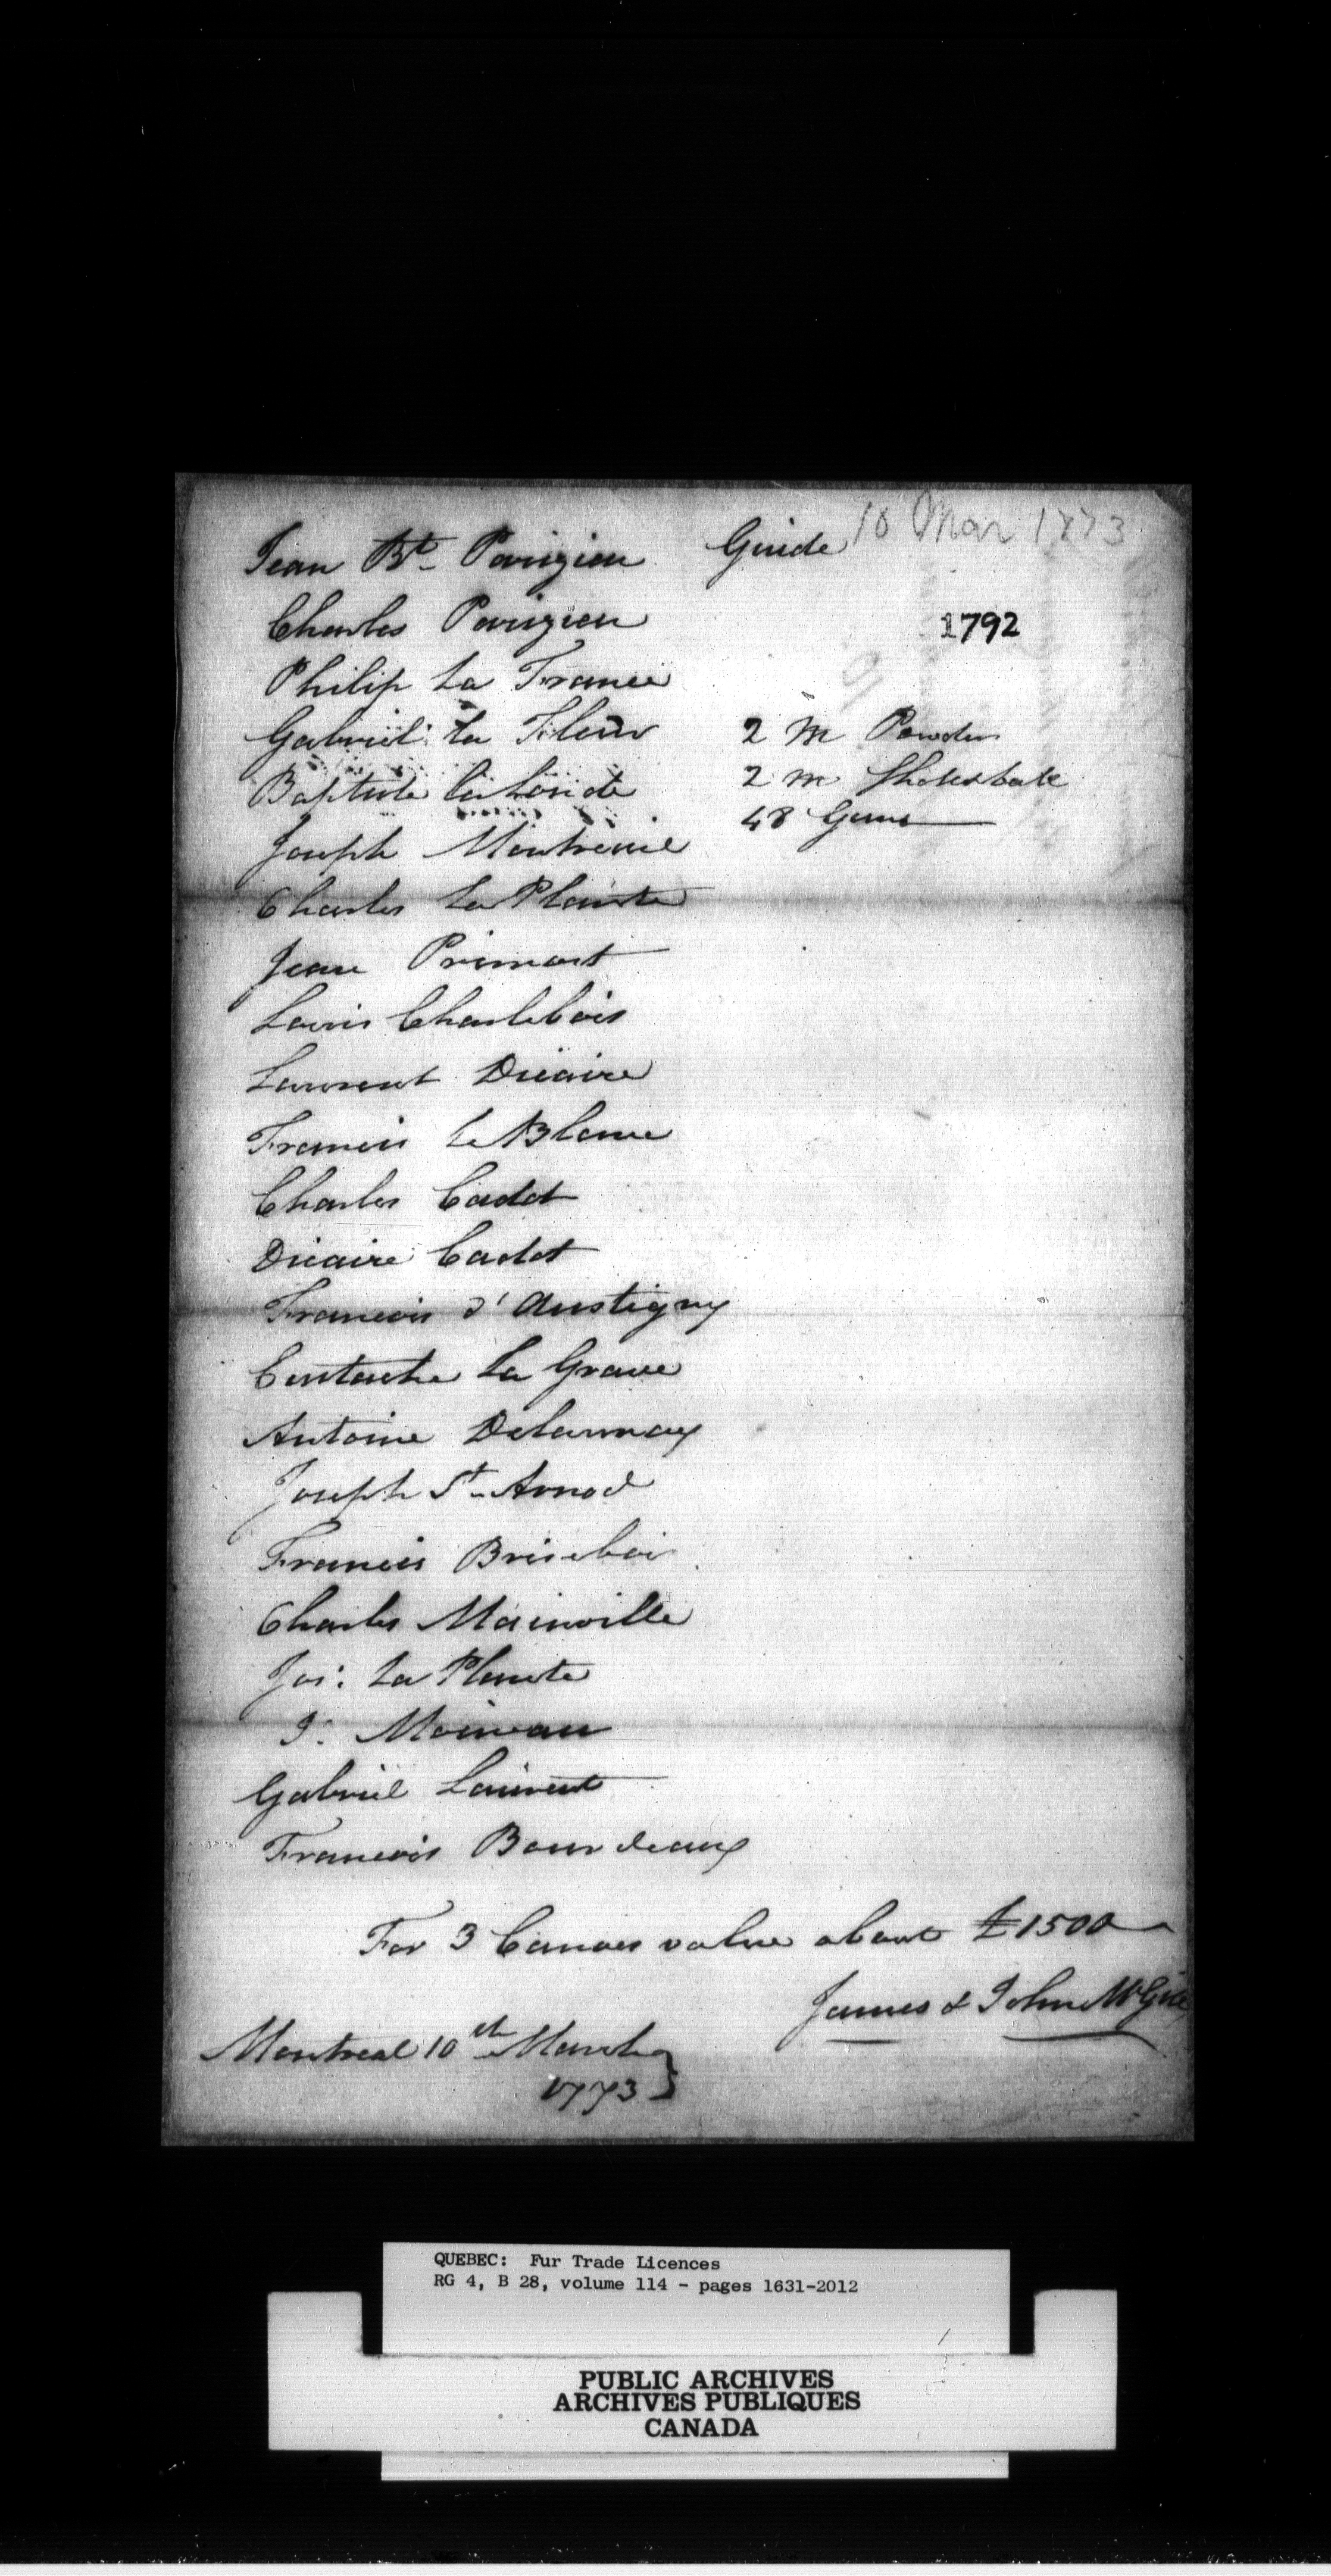 10 Mar 1773
Jean Bt. Parizien Guide
Charles Parizien
1792
Philip La France
Gabriel La Fleur 2 M Powder
Baptiste la Londe 2 M Shot & ball
Joseph Montreuil 48 Guns
Charles La Plante
Jean Primont
Louis Charlebois
Laurent Dicaire
Francis Le Blanc
Charles Cadot
Dicaire Cadot
Francois d'Austigny
Eustache La Grave
Antoine Delaunay
Joseph St. Arnod
Francis Brisebois
Charles Mainville
Jos: La Plante
J: Moineau
Gabriel Laurent
Francois Bourdeaux
For 3 Canoes value about £1500
James & John McGill
Montreal 10th March
1773
QUEBEC: Fur Trade Licences
RG 4, B 28, volume 114 - pages 1631-2012
PUBLIC ARCHIVES
ARCHIVES PUBLIQUES
CANADA